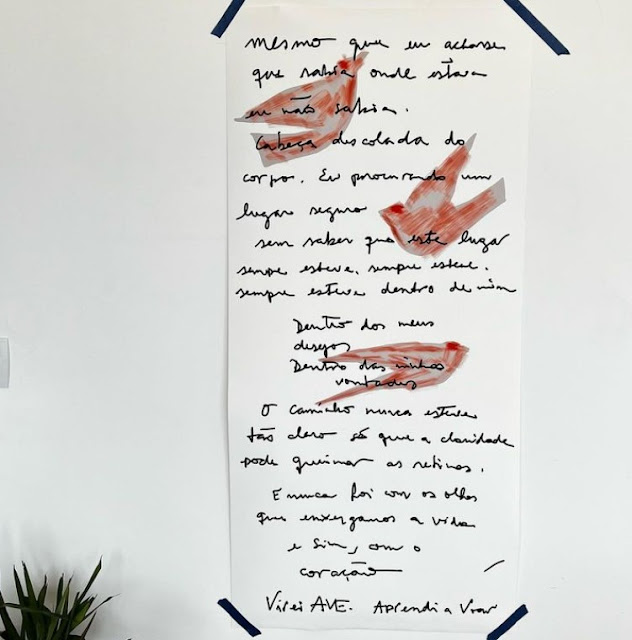 mesmo que eu achasse
que sabia onde estava
eu não sabia.
Cabeça descolada do
corpo. Eu procurando um
lugar seguro
sem saber que este lugar
sempre esteve, sempre esteve.
sempre esteve dentro de mim
Dentro dos meus
desejos
Dentro das minhas
vontades
O caminho nunca esteve
tão claro só que a claridade
pode queimar as retinas.
E nunca foi com os olhos
que enxergamos a vida
e sim, com o
coração
Virei AVE. Aprendi a Voar